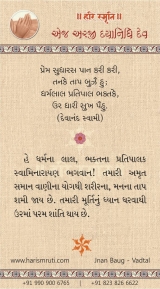 ॥ હરિ સ્મૃતિ ॥
એજ અરજી દયાનિધિ દેવ
પ્રેમ સુધારસ પાન કરી કરી,
તનકે તાપ બુઝૈ હું;
ધર્મલાલ પ્રતિપાલ ભક્તકે,
ઉર ધારી સુખ પૈહું,
(દેવાનંદ સ્વામી)
હે ધર્મના લાલ, ભક્તના પ્રતિપાલક
સ્વામિનારાયણ ભગવાન! તમારી અમૃત
સમાન વાણીના યોગથી શરીરના, મનના તાપ
શામી જાય છે. તમારી મૂર્તિનું ધ્યાન ધરવાથી
ઉરમાં પરમ શાંતિ થાય છે.
www.harismruti.com
Jnan Baug - Vadtal
+91 990 900 6765 | +91 823 826 6622